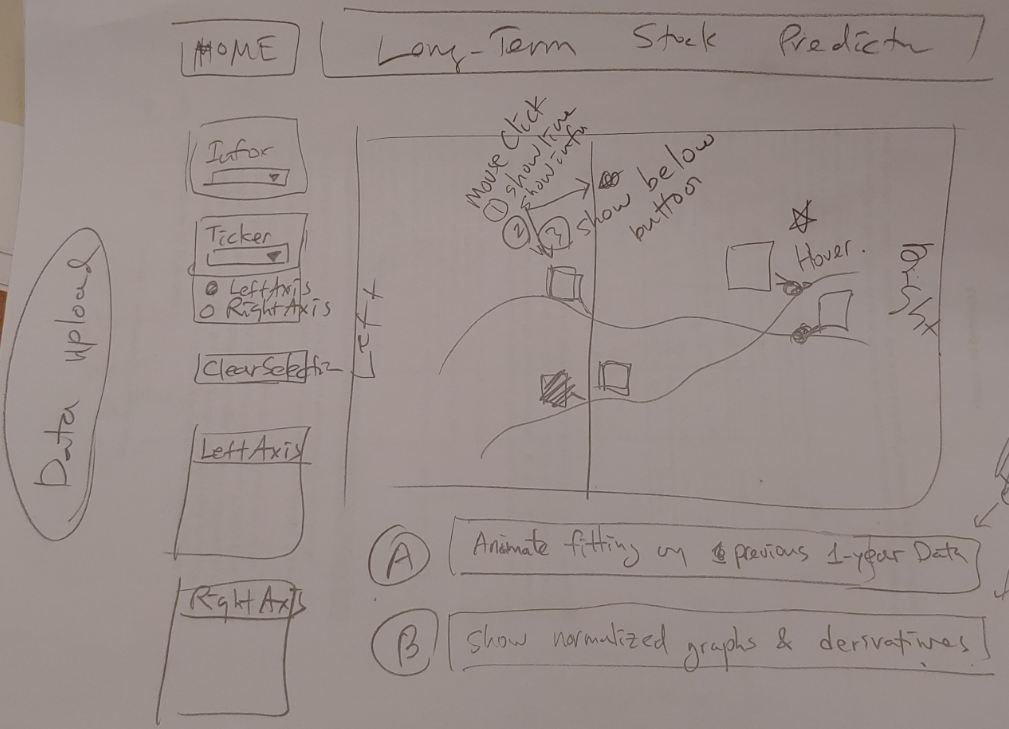 HOME
Long-Term Stock Predictn
Infor
Ticker
LeftAxis
RightAxis
ClearSelectin
LeftAxis
RightAxis
Data upload
Left
Mouse Click
① show line
② show infn
③ show below
button
Hover.
Right
A
Animate fitting on previous 1-year Data
B
Show normalized graphs & derivatives